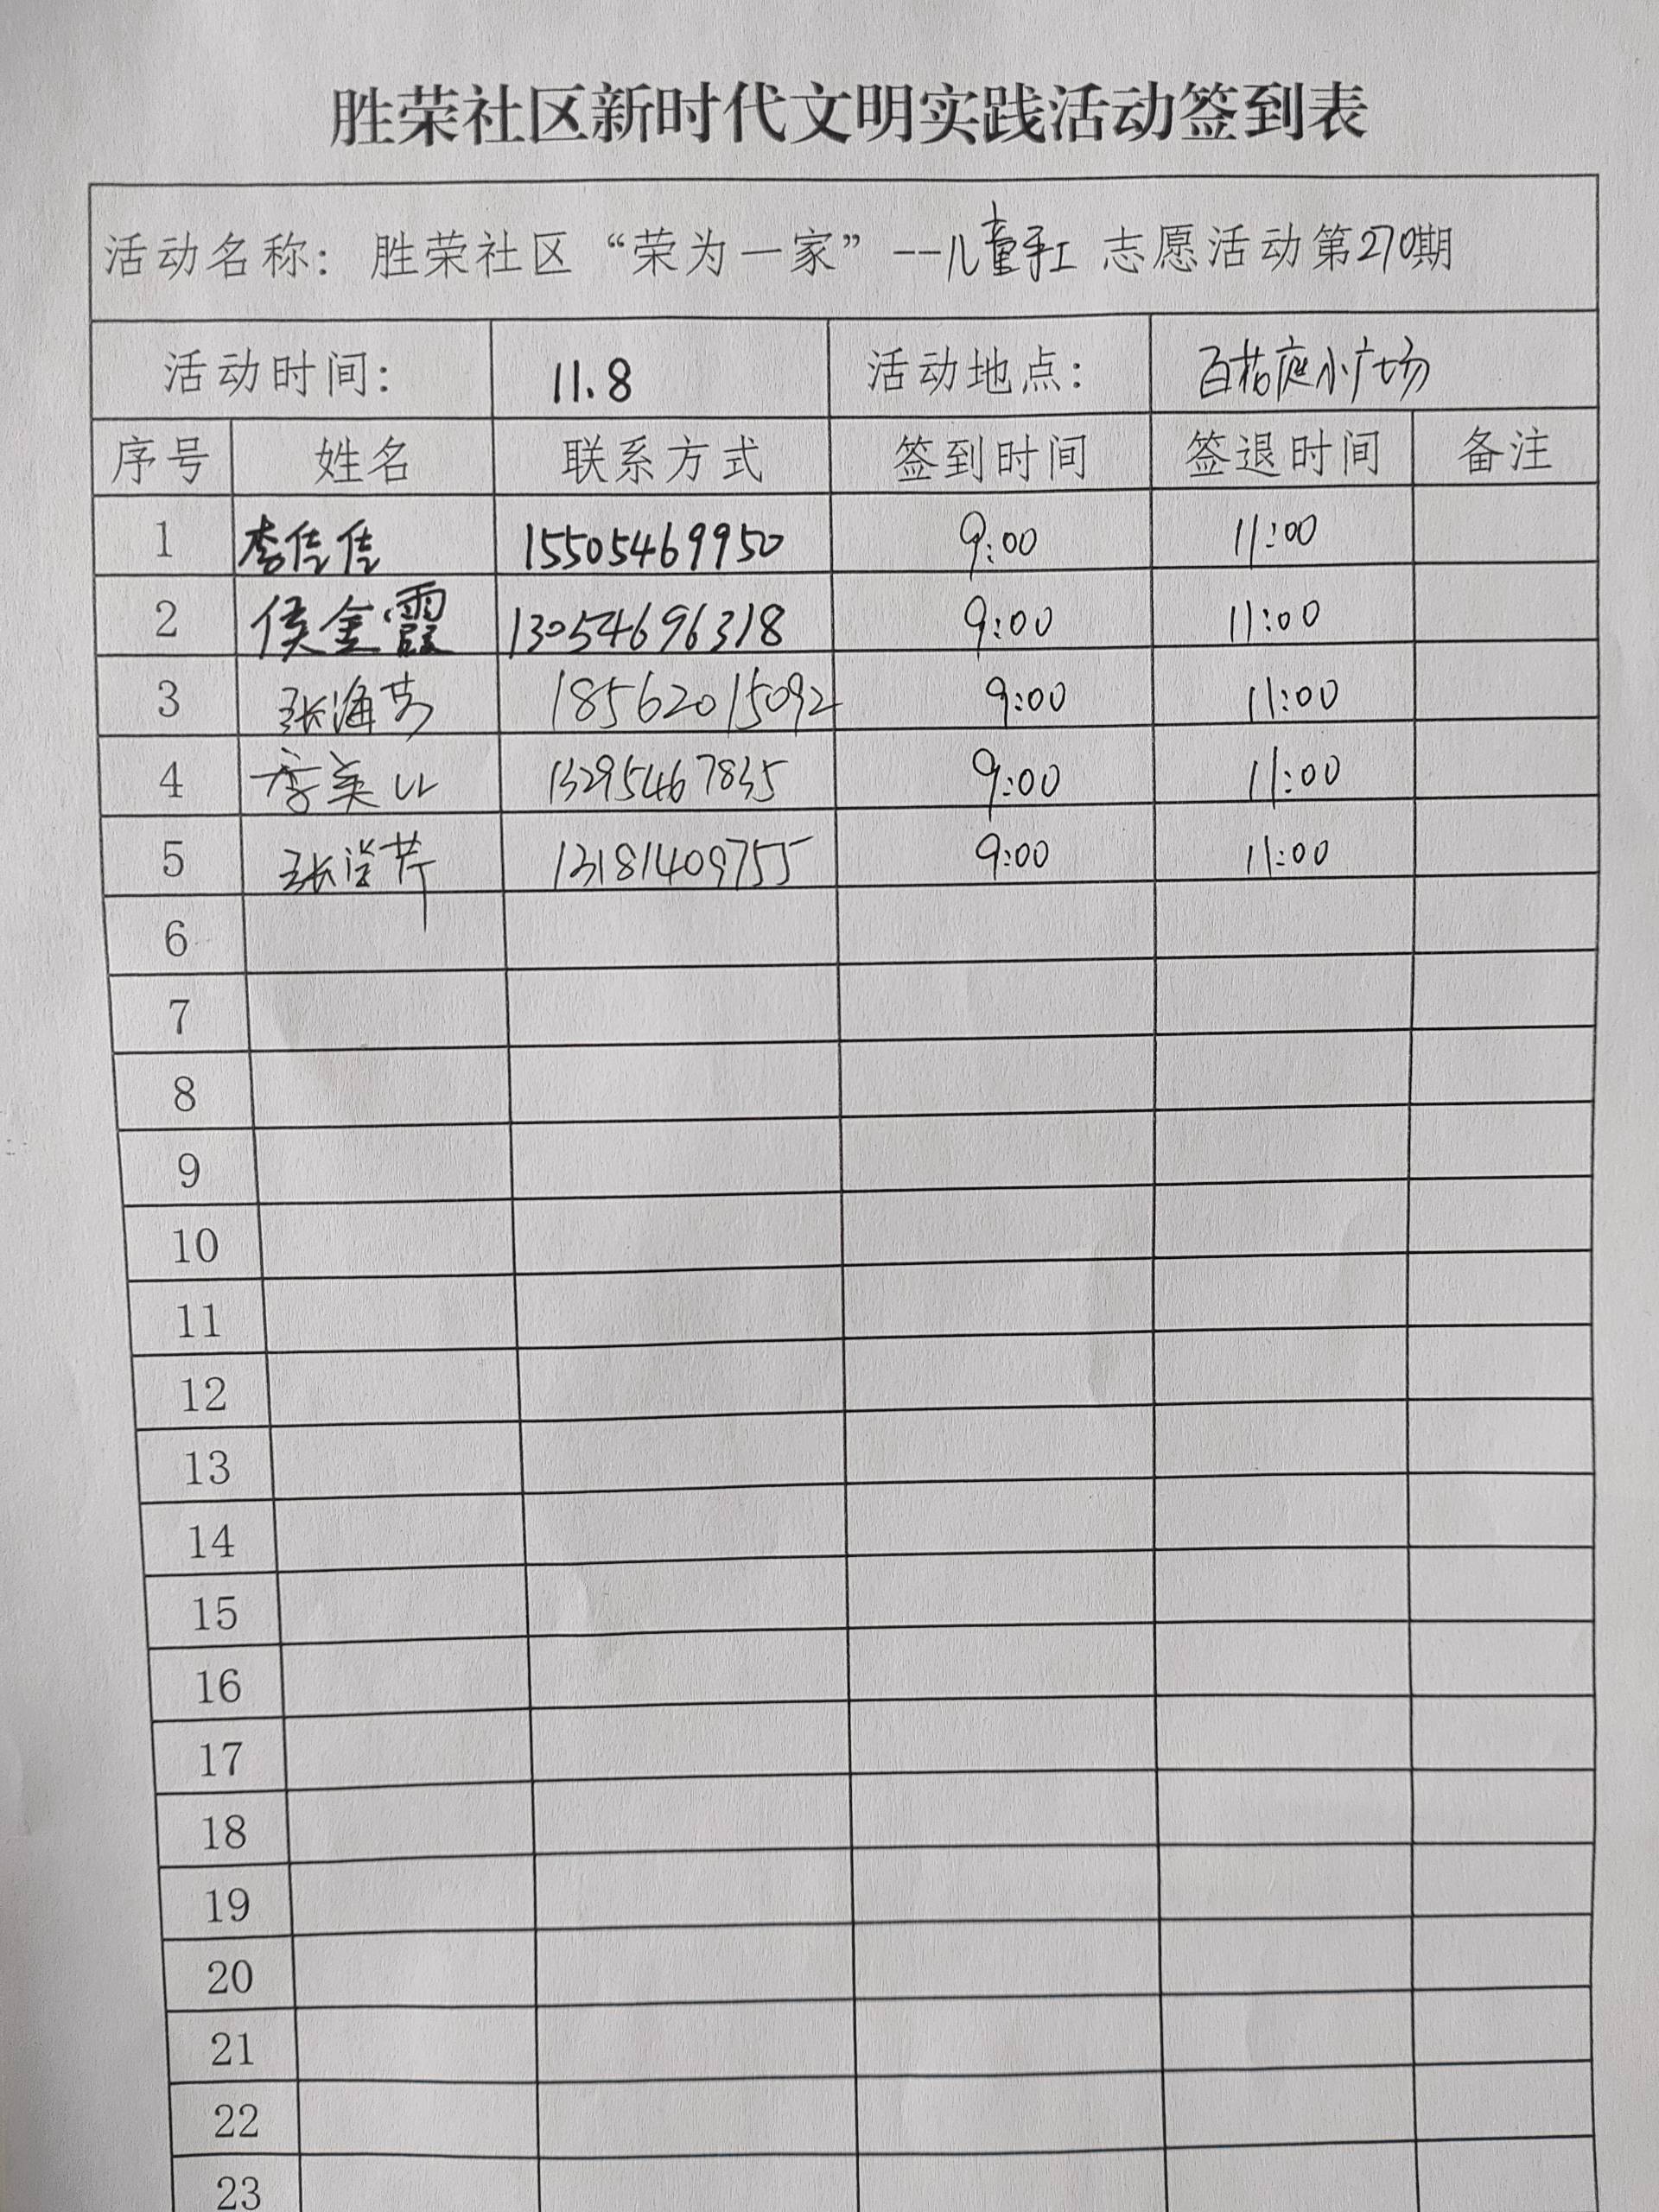 胜荣社区新时代文明实践活动签到表
活动名称：胜荣社区“荣为一家”--儿童手工 志愿活动第270期
活动时间： 11.8 活动地点： 百桔庭小广场
序号 姓名 联系方式 签到时间 签退时间 备注
1 李佳佳 15505469950 9:00 11:00
2 侯金霞 13054696318 9:00 11:00
3 张海芳 18562015092 9:00 11:00
4 李美 13295467835 9:00 11:00
5 张 芹 13181409755 9:00 11:00
6
7
8
9
10
11
12
13
14
15
16
17
18
19
20
21
22
23